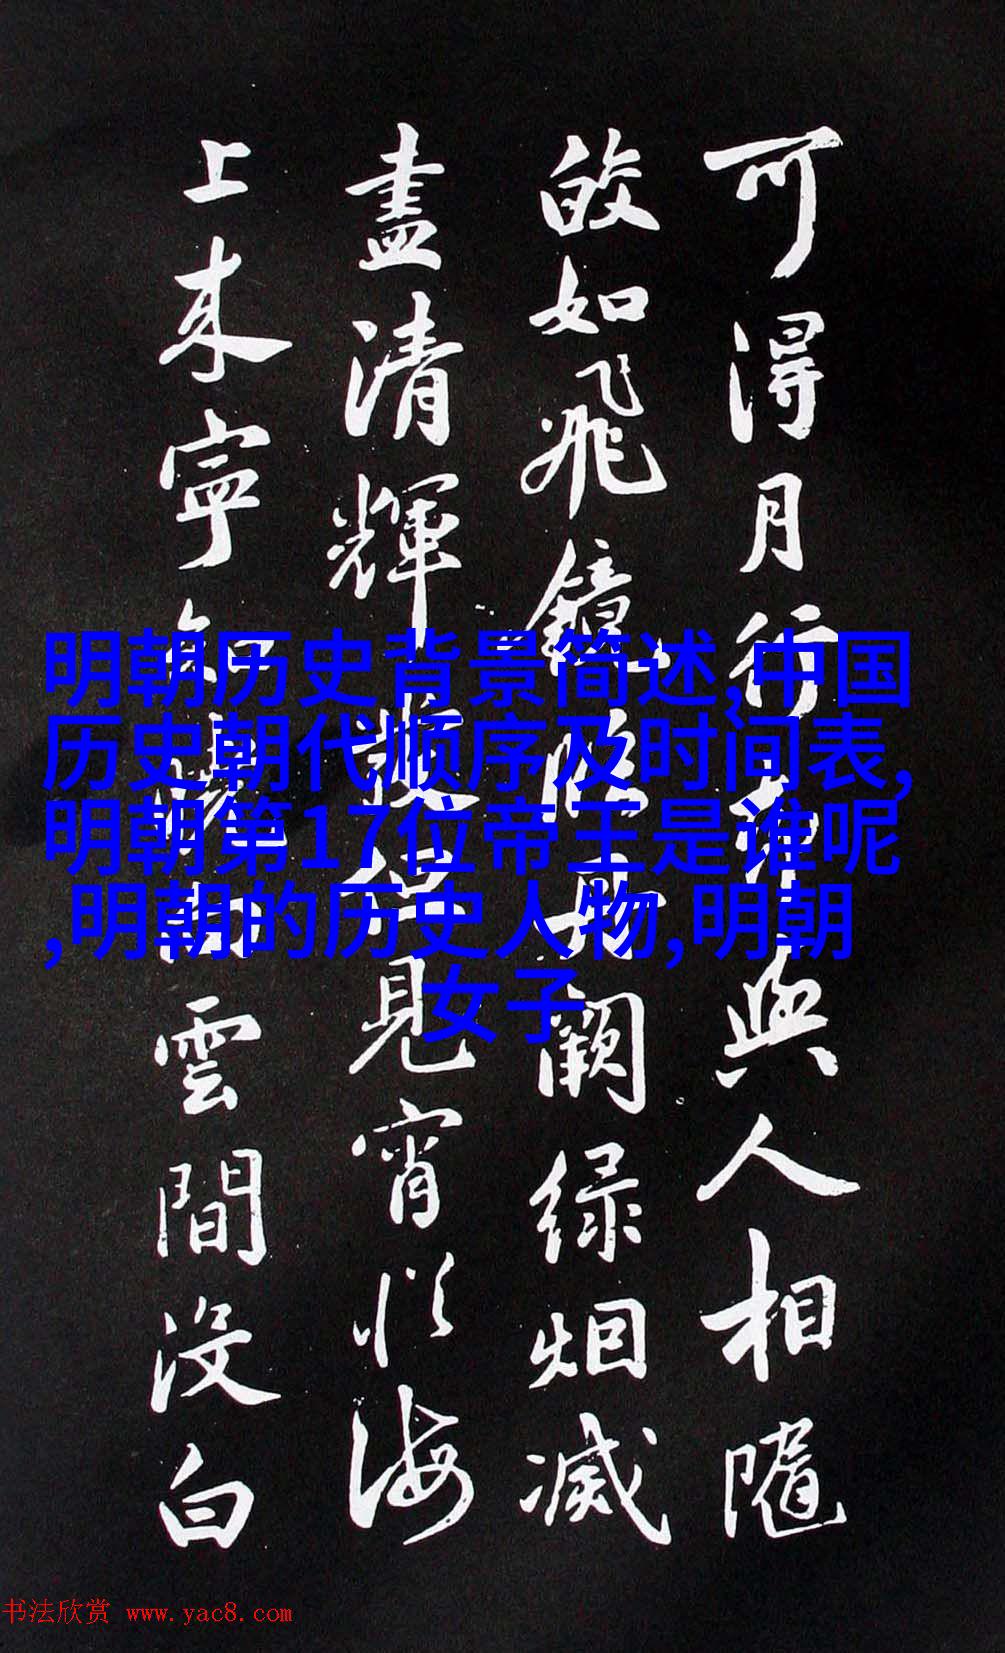 可得月行却與人相隨
皎如飛鏡臨丹闕緑烟滅
盡清輝發但見宵從海
上来寧知曉向雲間沒白
明朝历史背景简述,中国
历史朝代顺序及时间表,
明朝第17位帝王是谁呢
,明朝的历史人物,明朝
女子
书法欣赏 www.yac8.com